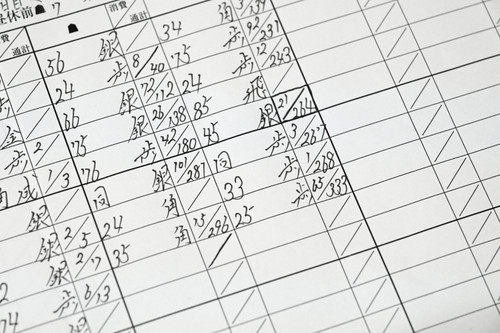 昼休前 ☗ 7
消費 通計
☗
消費 通計
56 銀 34 角 3/134
24 歩 8/40 75 歩 92/231
66 銀 72/112 24 歩 12/243
75 銀 26/138 85 飛
76 歩 42/180 45 銀 21/264
同 銀 101/281 同 歩 3/267
24 角 33 歩 1/268
35 角 15/296 25 歩 65/333
歩 2
成 1/3
銀
銀 2/5
銀 2/7
歩 6/13
74